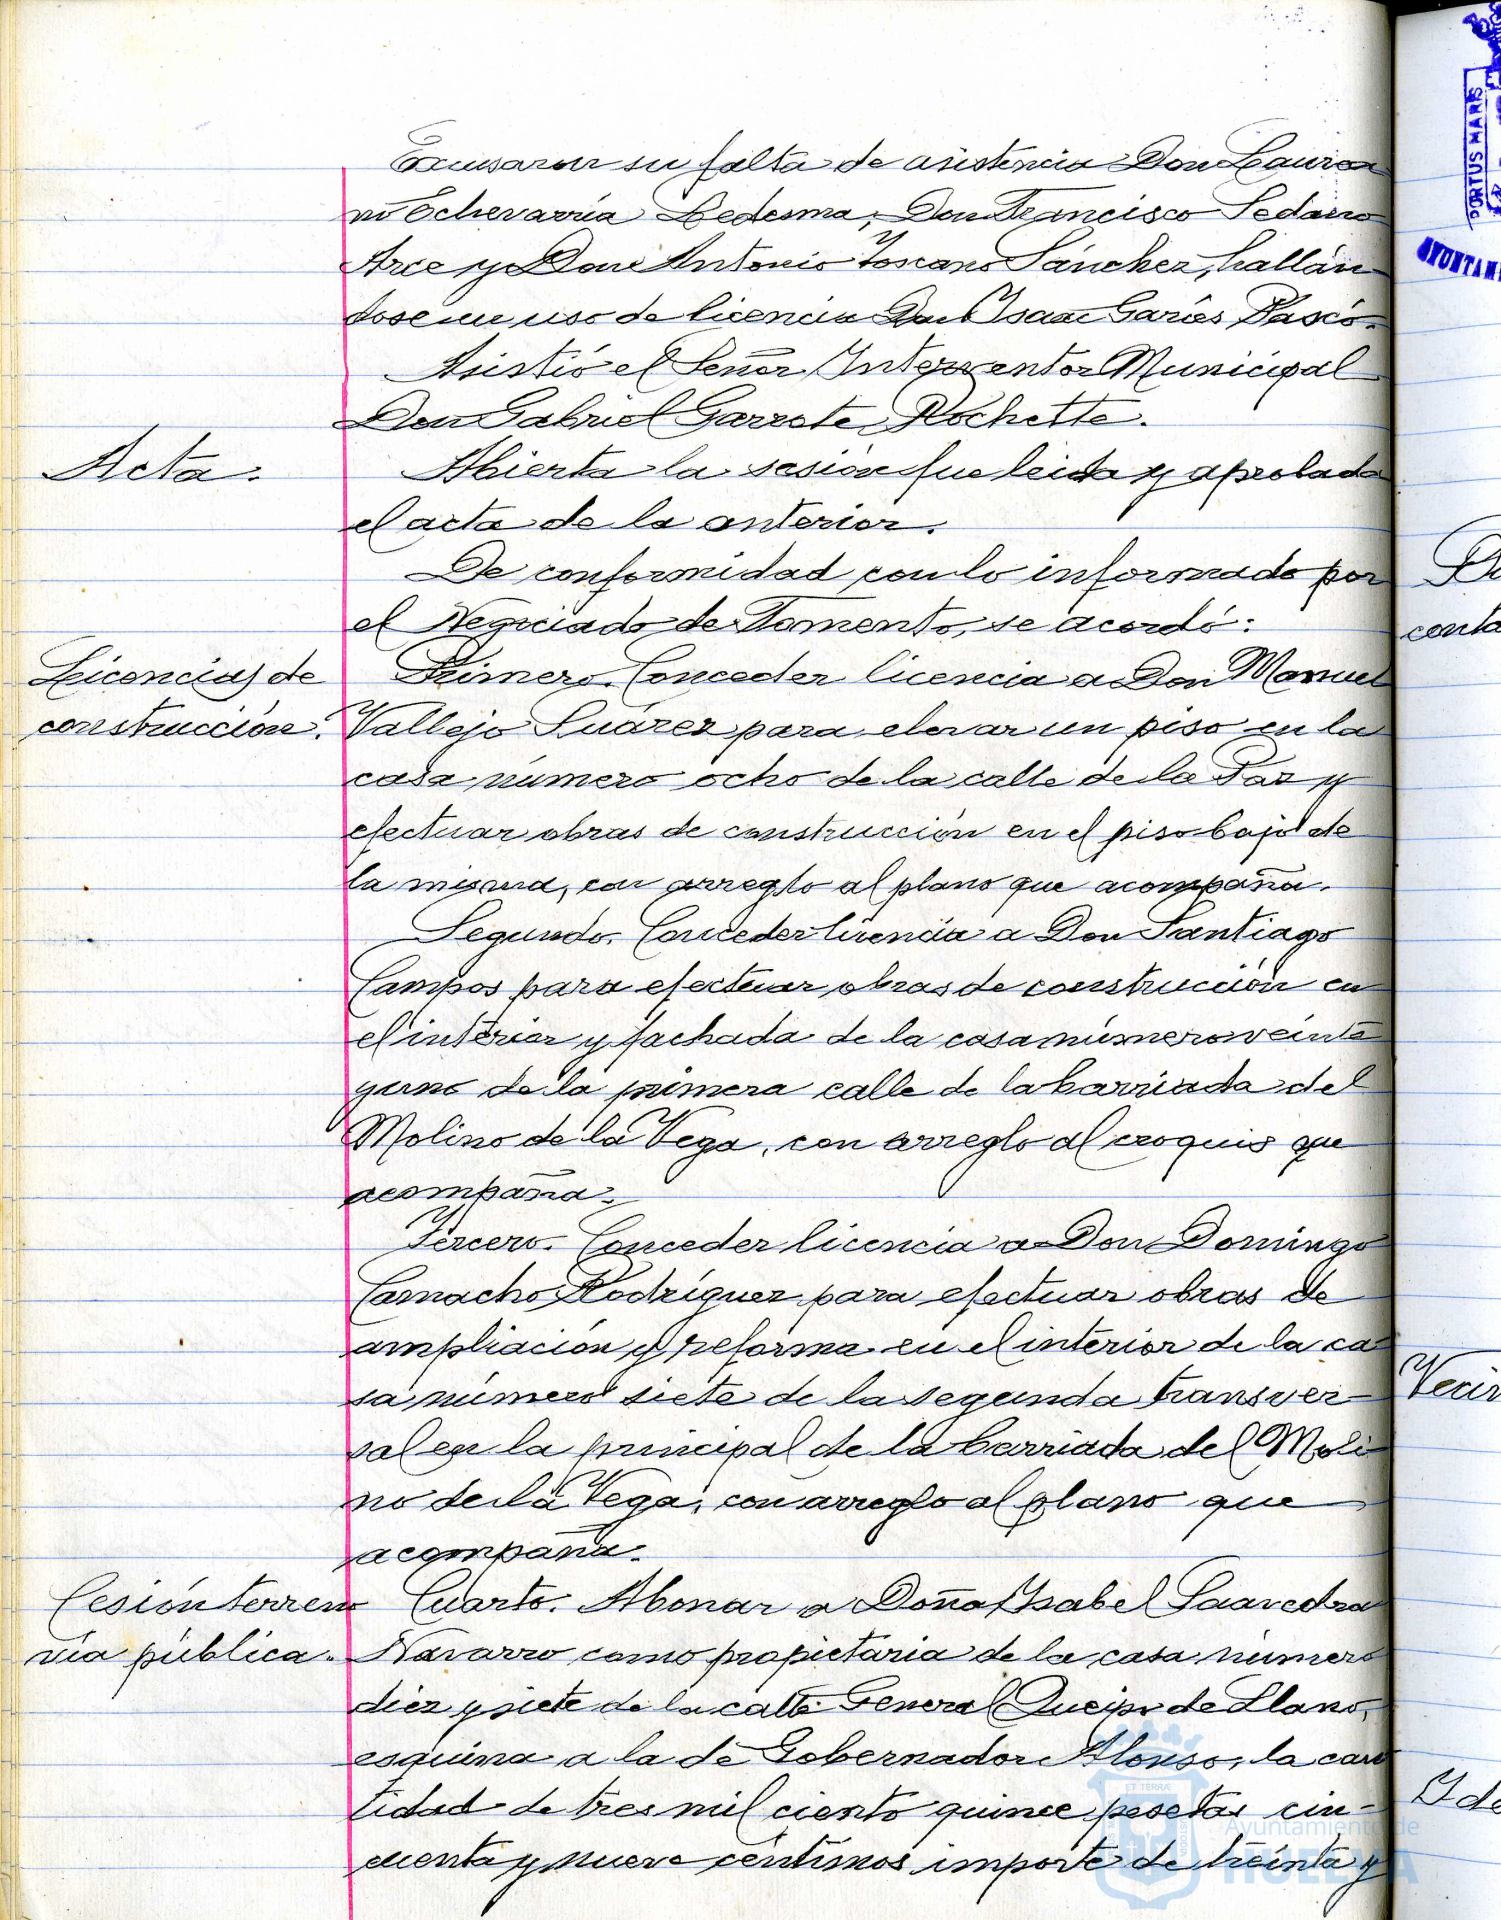 Excusaron su falta de asistencia Don Laurea
no Echevarría Ledesma, Don Francisco Sedano
Arce y Don Antonio Toscano Sánchez, hallán
dose en uso de licencia Don Isaac Garcés Pascó.
Asistió el Señor Interventor Municipal
Don Gabriel Garrote Rochette.
Acta.
Abierta la sesión fue leida y aprobada
el acta de la anterior.
De conformidad con lo informado por
el Negociado de Fomento, se acordó:
Licencias de
construcción.
Primero. Conceder licencia a Don Manuel
Vallejo Suárez para elevar un piso en la
casa número ocho de la calle de la Paz y
efectuar obras de construcción en el piso bajo de
la misma, con arreglo al plano que acompaña.
Segundo. Conceder licencia a Don Santiago
Campos para efectuar obras de construcción en
el interior y fachada de la casa número veinte
y uno de la primera calle de la barriada del
Molino de la Vega, con arreglo al croquis que
acompaña.
Tercero. Conceder licencia a Don Domingo
Camacho Rodríguez para efectuar obras de
ampliación y reforma en el interior de la ca
sa número siete de la segunda transver-
sal en la principal de la barriada del Moli
no de la Vega, con arreglo al plano que
acompaña.
Cesión terreno
vía pública.
Cuarto. Abonar a Doña Isabel Saavedra
Navarro como propietaria de la casa número
diez y siete de la calle General Queipo de Llano,
esquina a la de Gobernador Alonso, la can
tidad de tres mil ciento quince pesetas cin-
cuenta y nueve céntimos importe de treinta y
PORTUS MARIS
ET TERRAE
Ayuntamiento de
HUELVA